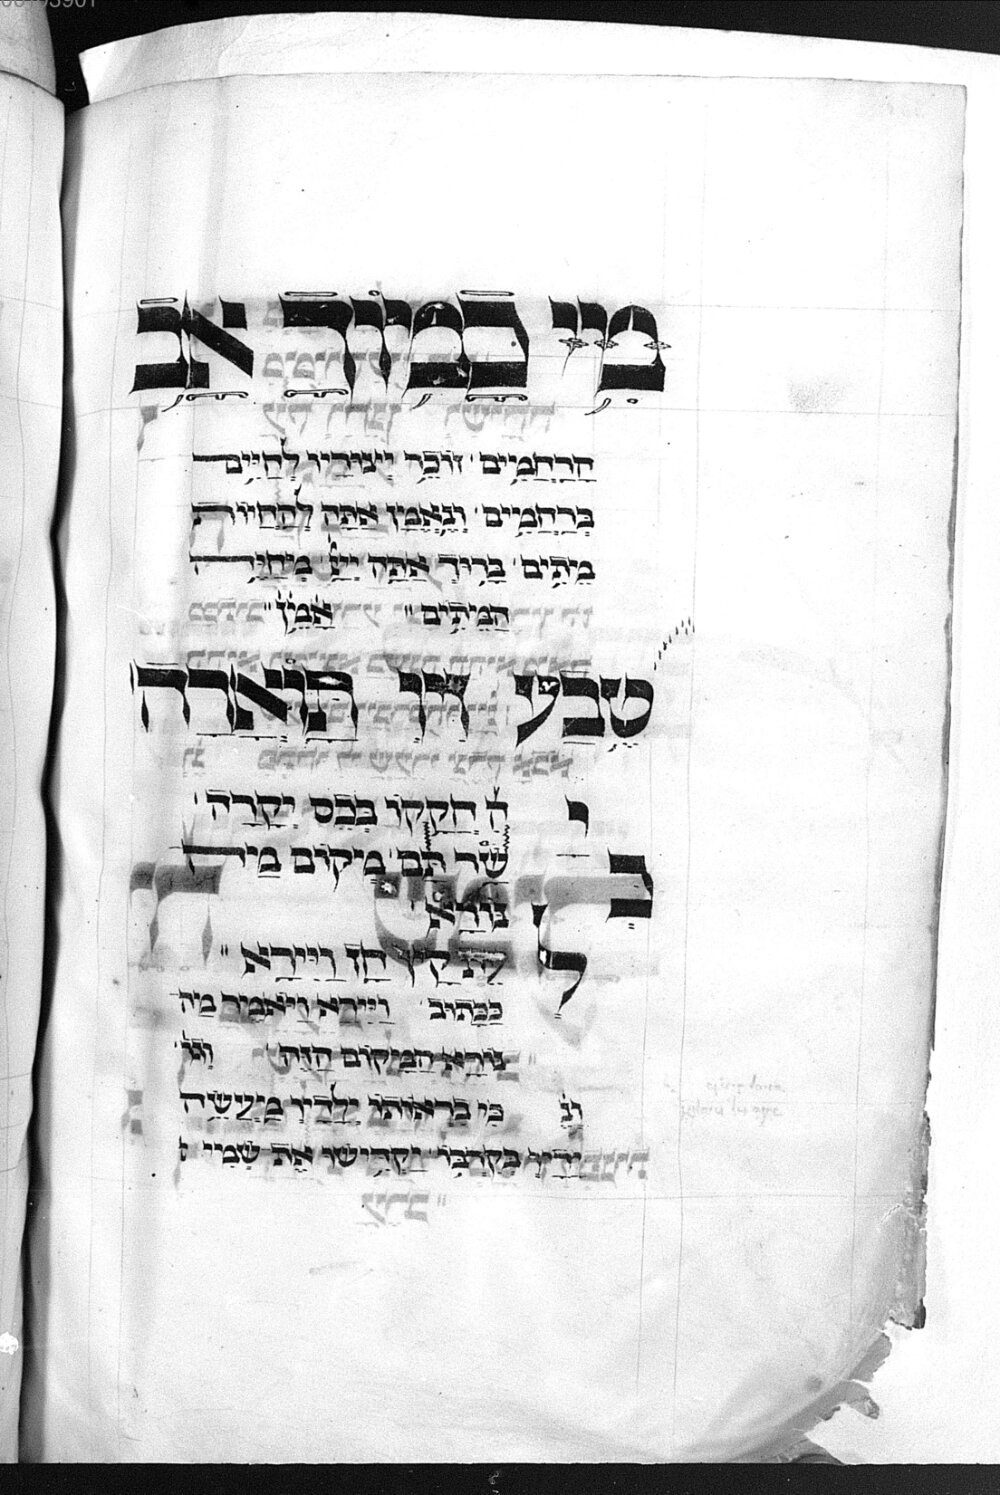 מי כמוך אב
הרחמים זוכר יצוריו לחיים
ברחמים ונאמן אתה להחיות
מתים ברוך אתה יי מחיה
המיתים אמן
טבע זיו תוארה
י ח חקקו בכס יקרה
ב שר תם מיקום מיה
נורא
ל קץ חז ויירא
ככתוב ויירא ויאמר מה
נורא המקום הזה ונו
ונ כי בראותו ילדיו מעשה
ידיי בקרבו יקדישו את שמיי